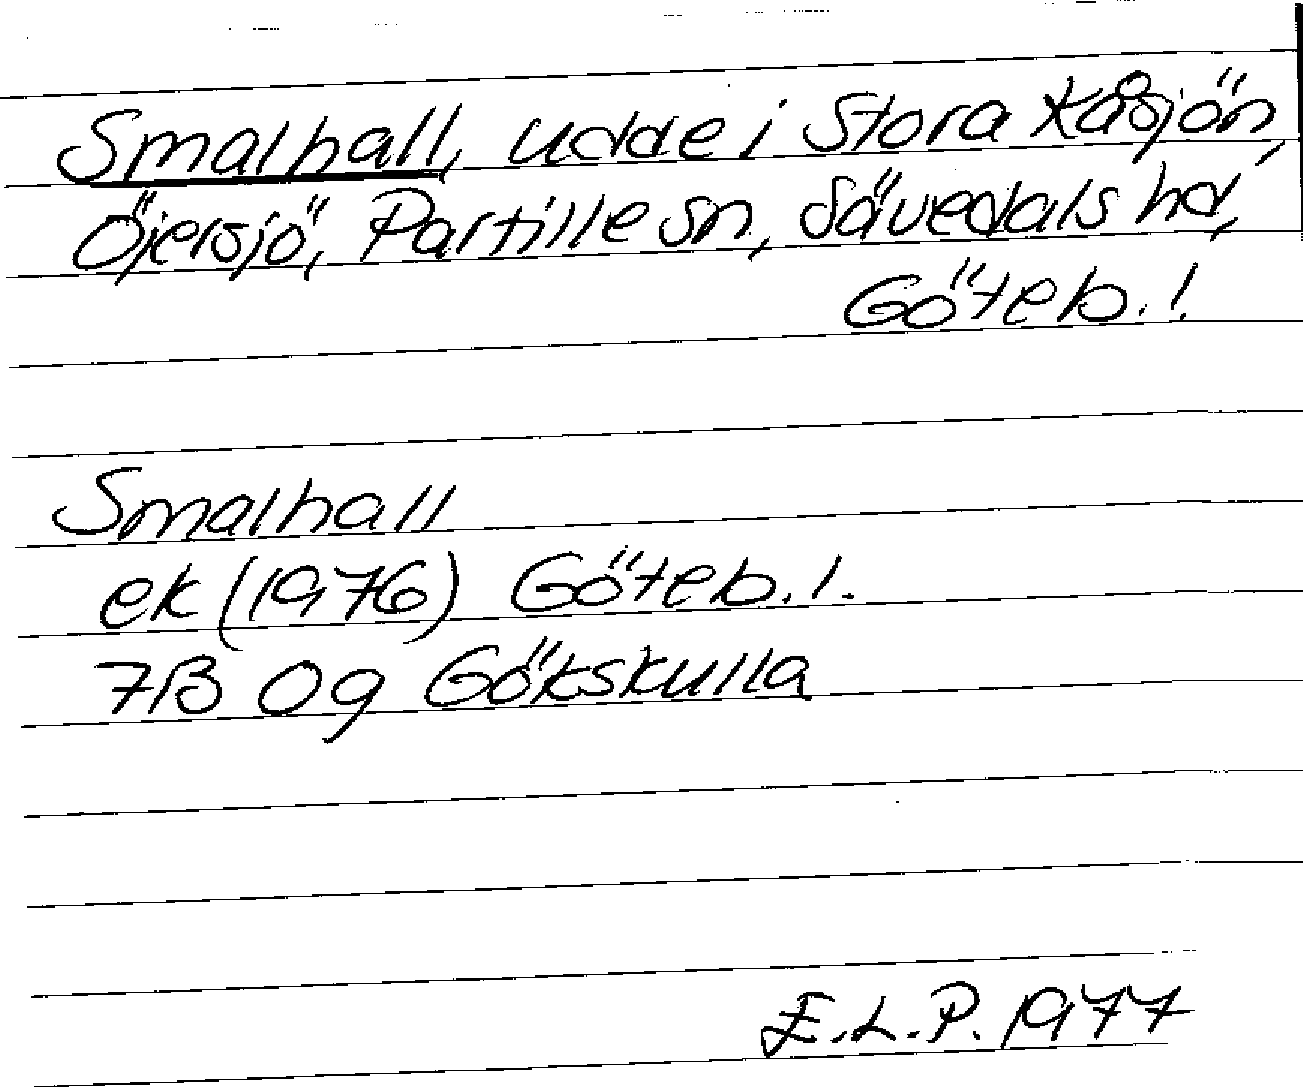 Smalhall, udde i Stora Kåsjön,
Öjersjö, Partille sn, Sävedals hd,
Göteb. l.
Smalhall
ek (1976) Göteb. l.
7B 0g Gökskulla
E.L.P. 1977